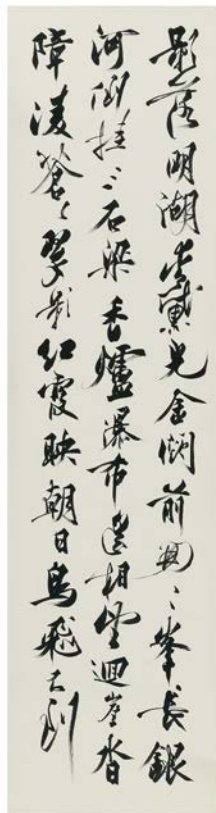 影落明湖青黛光金闕前開二峯長銀
河倒挂三石梁香爐瀑布遙相望迴崖沓
障凌蒼〻翠影紅霞映朝日鳥飛不到